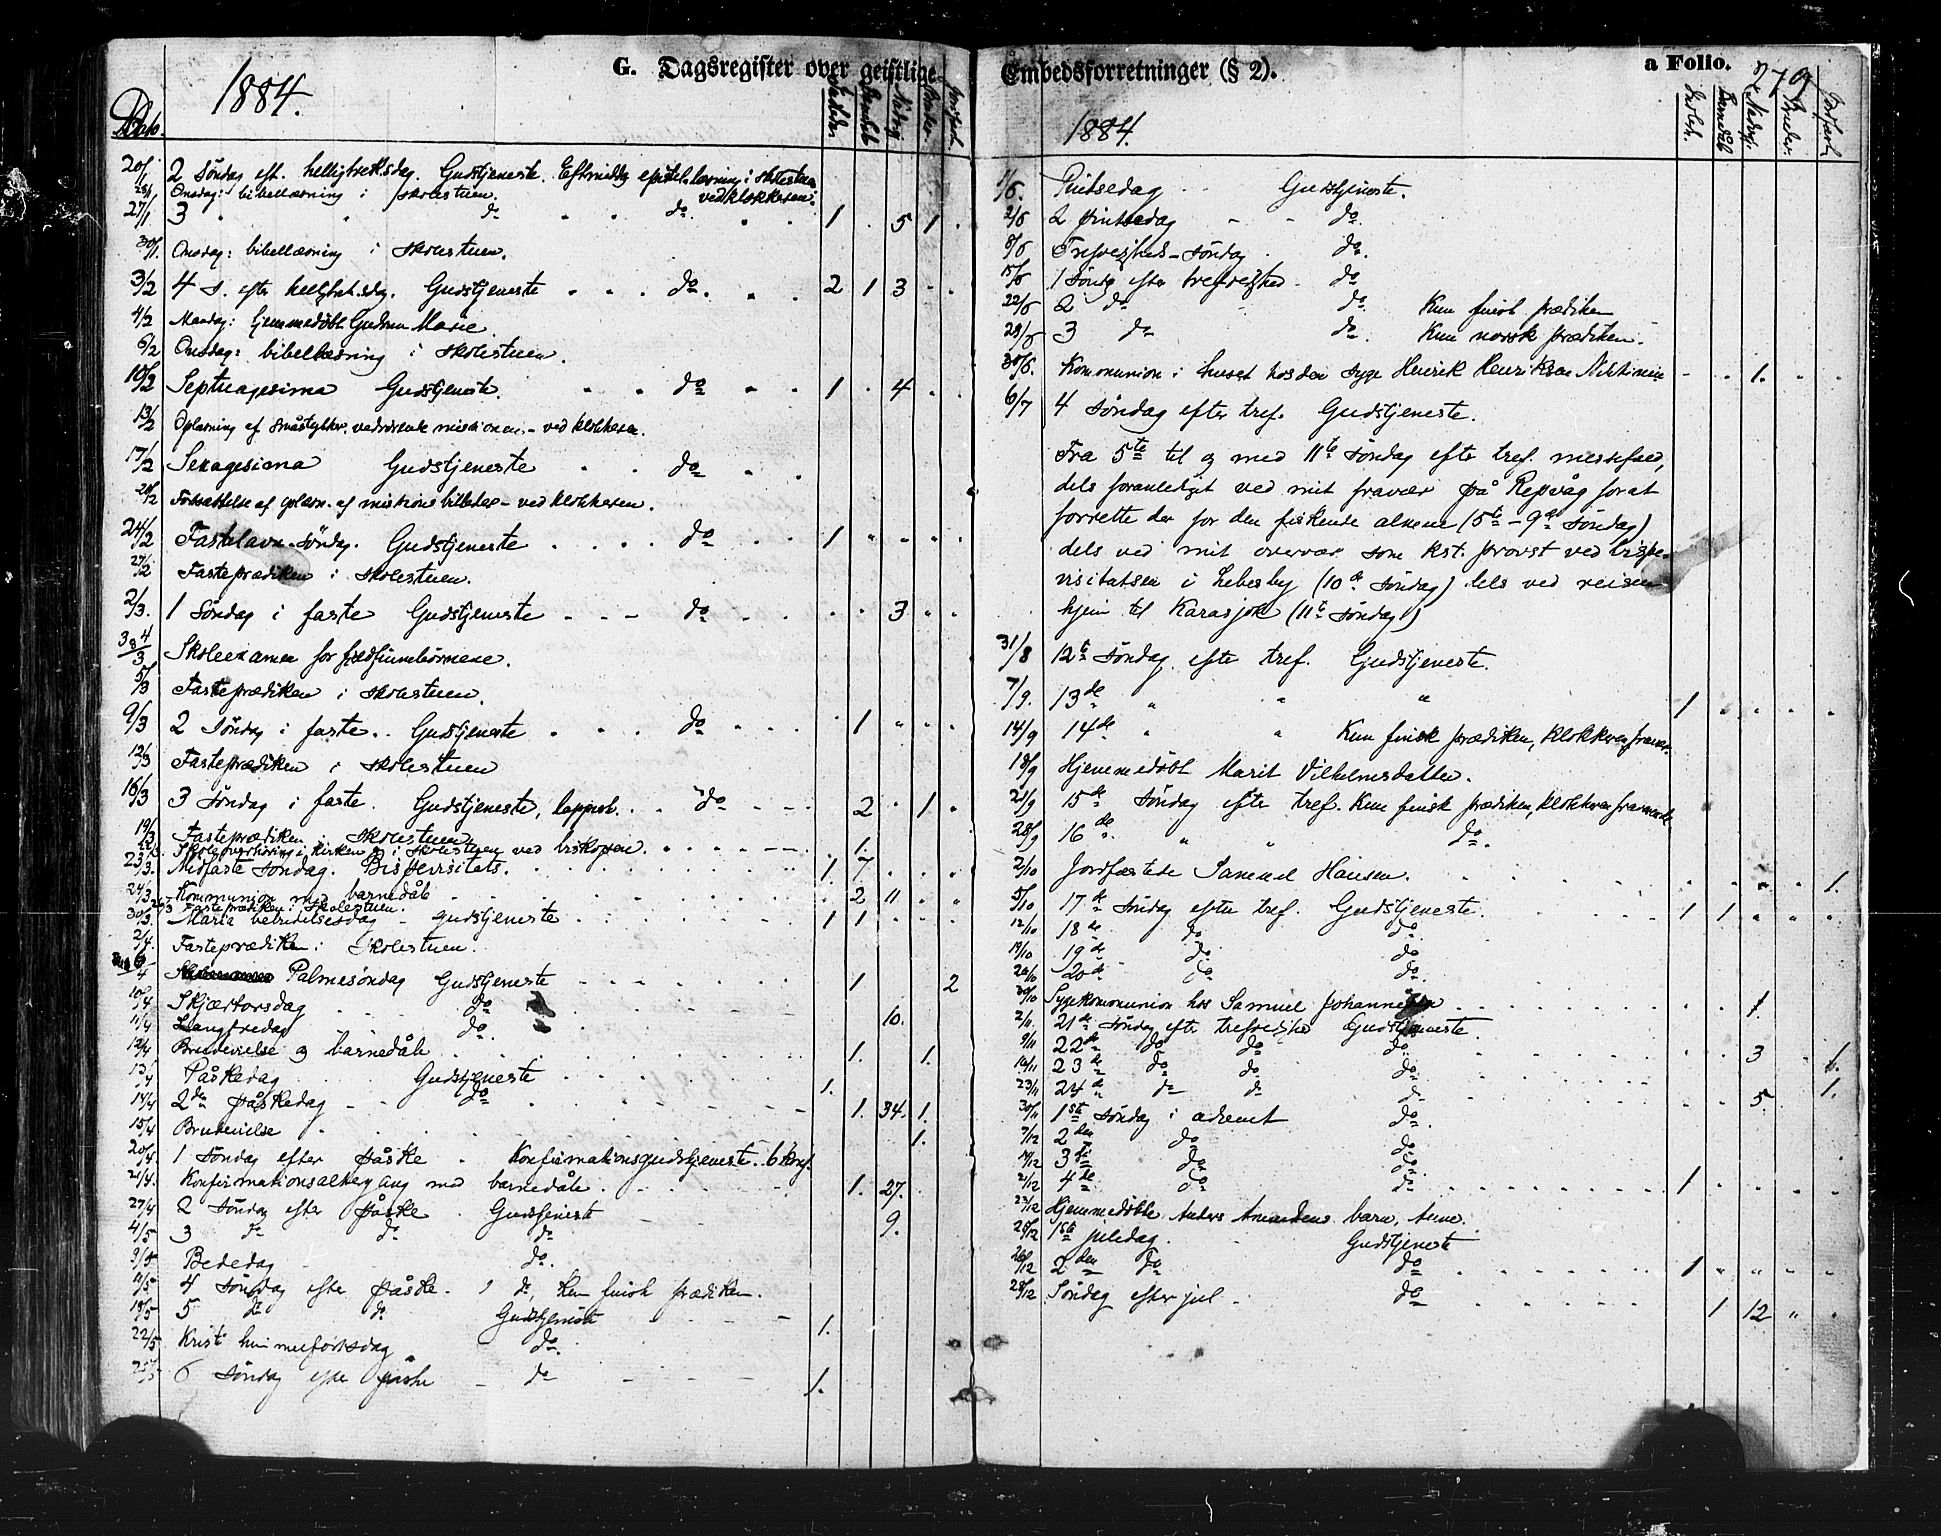 G. Dagsregister over geistlige
1884.
Dato
20/1 2 Søndag eft. helligtrekdag. Gudstjeneste. Eftermiddag epistel læsning i skolestuen
ved klokkeren.
23/1 Onsdag: bibellæsning i skolestuen.
27/1 3 " " do do 1 . 5 1 .
30/1 Onsdag: bibellæsning i skolestuen.
3/2 4 S. efter helligtrek.dag. Gudstjeneste do 2 1 3
4/2 Mandag: hjemmedøbt Gudrun Marie
6/2 Onsdag: bibellæsning i skolestuen.
10/2 Septuagesima Gudstjeneste. do 1 . 4
13/2 Oplæsning af småstykker vedrørende missionen - ved klokkeren.
17/2 Sexagesima Gudstjeneste do
20/2 Fortsættelse af oplæsn. af missions billeder - ved klokkeren.
24/2 Fastelavn-Søndag. Gudstjeneste do 1
27/2 Fasteprædiken i skolestuen.
2/3. 1 Søndag i faste Gudstjeneste do 3
3 & 4/3 Skoleexamen for fjedfinnebørnene.
5/3 Fasteprædiken i skolestuen.
9/3 2 Søndag i faste. Gudstjeneste do 1
12/3 Fasteprædiken i skolestuen
16/3 3 Søndag i faste. Gudstjeneste, lappesk. do 2 . 1
19/3 Fasteprædiken i skolestuen
22/3. Skoleoverhøring i kirken og i skolestuen ved biskopen. 1.
23/3. Midfaste Søndag. Bispevisitats. 1. 7
24/3 Kommunion med barnedåb 2 11
26/3 Fasteprædiken i skolestuen.
30/3 Maria bebudelsesdag - gudstjeneste 1 1
2/4. Fasteprædiken i skolestuen.
6/4 Palmesøndag Gudstjeneste 1 2
10/4 Skjærtorsdag do 10.
11/4 Langfredag do.
12/4 Brudevielse og barnedåb 1. 1.
13/4 Påskedag Gudstjeneste 1.
14/4 2den påskedag do 1. 34. 1.
15/4 Brudevielse 1.
20/4. 1 Søndag efter påske. Konfirmationsgudstjeneste. 6 konf.
21/4. Konfirmationsaltergang med barnedåb. 1. 27.
27/4 2 Søndag efter påske. Gudstjeneste 9.
4/5 3 do do do
9/5 Bededag do.
11/5 4 Søndag efter påske. do, kun finsk prædiken.
18/5 5 do do Gudstjeneste 1.
22/5 Kristi himmelfartsdag do.
25/5 6 Søndag efter påske do 1.
Embedsforretninger (§ 2).
a Folio. 279
1884.
1/6. Pintsedag Gudstjeneste.
2/6 2 pintsedag do
8/6 Trefoldighed-Søndag do.
15/6 1 Søndg efter trefoldighed do
22/6 2 do do. Kun finsk prædiken
29/6 3 do do. Kun norsk prædiken.
30/6. Kommunion i huset hos den syge Henrik Henriksen Nikkinen 1.
6/7 4 Søndag efter tref. Gudstjeneste.
Fra 5te til og med 11te Søndag efter tref. messefald,
dels foranlediget ved mit fravær på Repvåg for at
forrette der for den fiskende almue (5te-9de Søndag)
dels ved mit overvær som kst. provst ved bispe-
visitatsen i Lebesby (10de Søndag) dels ved reisen
hjem til Karasjok (11te Søndag)
31/8 12te Søndag efter tref. Gudstjeneste.
7/9. 13de " " " 1
14/9 14de " " Kun finsk prædiken, klokkeren fravær.
18/9 Hjemmedøbt Marit Vilhelmsdatter.
21/9 15de Søndag efter tref. Kun finsk prædiken, klokkeren fraværende
28/9 16de " " do.
2/10 Jordfæstede Sammel Hansen. 1.
5/10 17de Søndag efter tref. Gudstjeneste. 1 1
12/10 18de do do
19/10 19de do do
26/10 20de do do
30/10 Sygekommunion hos Samuel Johannesen 1.
2/11 21de Søndag efter trefoldighed Gudstjeneste
9/11 22de do do do 3 1
16/11 23de do do do 1.
23/11 24de do do do 5. 1.
30/11 1ste Søndag i advent do.
7/12 2den do do
14/12 3die do do
21/12 4de do do 1
23/12 Hjemmedøbte Anders Amundsens barn, Anne.
25/12 1ste juledag. Gudstjeneste
26/12 2den do do 1
28/12 Søndag efter jul. do 1 12